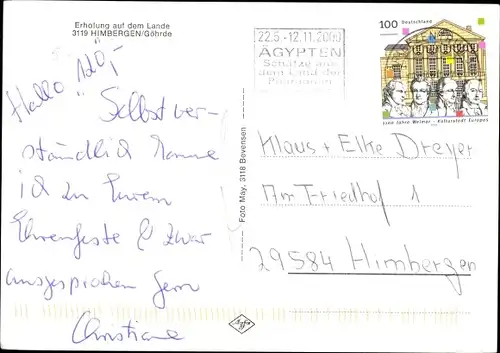 Erholung auf dem Lande
3119 HIMBERGEN/Göhrde
Hallo
Selbstver-
ständlich komme
ich zu Eurem
Ehrenfeste & zwar
ausgesprochen gern
Christiane
Foto May, 3118 Bevensen
22.5.-12.11.2000
ÄGYPTEN
Schätze aus
dem Land der
Pharaonen
100 Deutschland
1100 Jahre Weimar Kulturstadt Europas
Klaus + Elke Dreyer
Am Friedhof 1
29584 Himbergen
Agfa